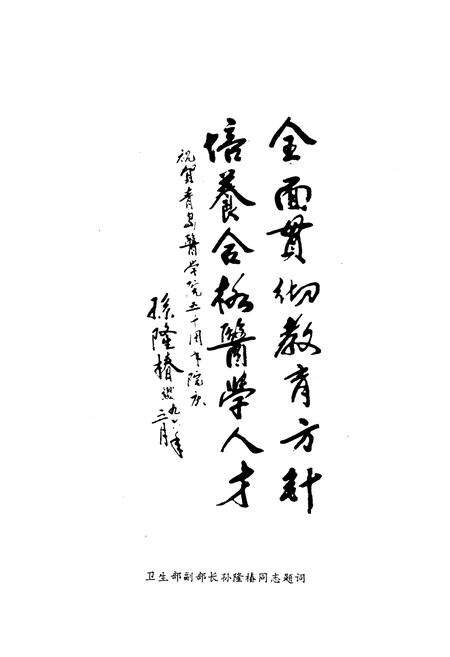 全面贯彻教育方針
培養合格醫學人才
祝贺青岛醫学院五十周年院庆
孫隆椿
一九九六年
三月
卫生部副部长孙隆椿同志题词